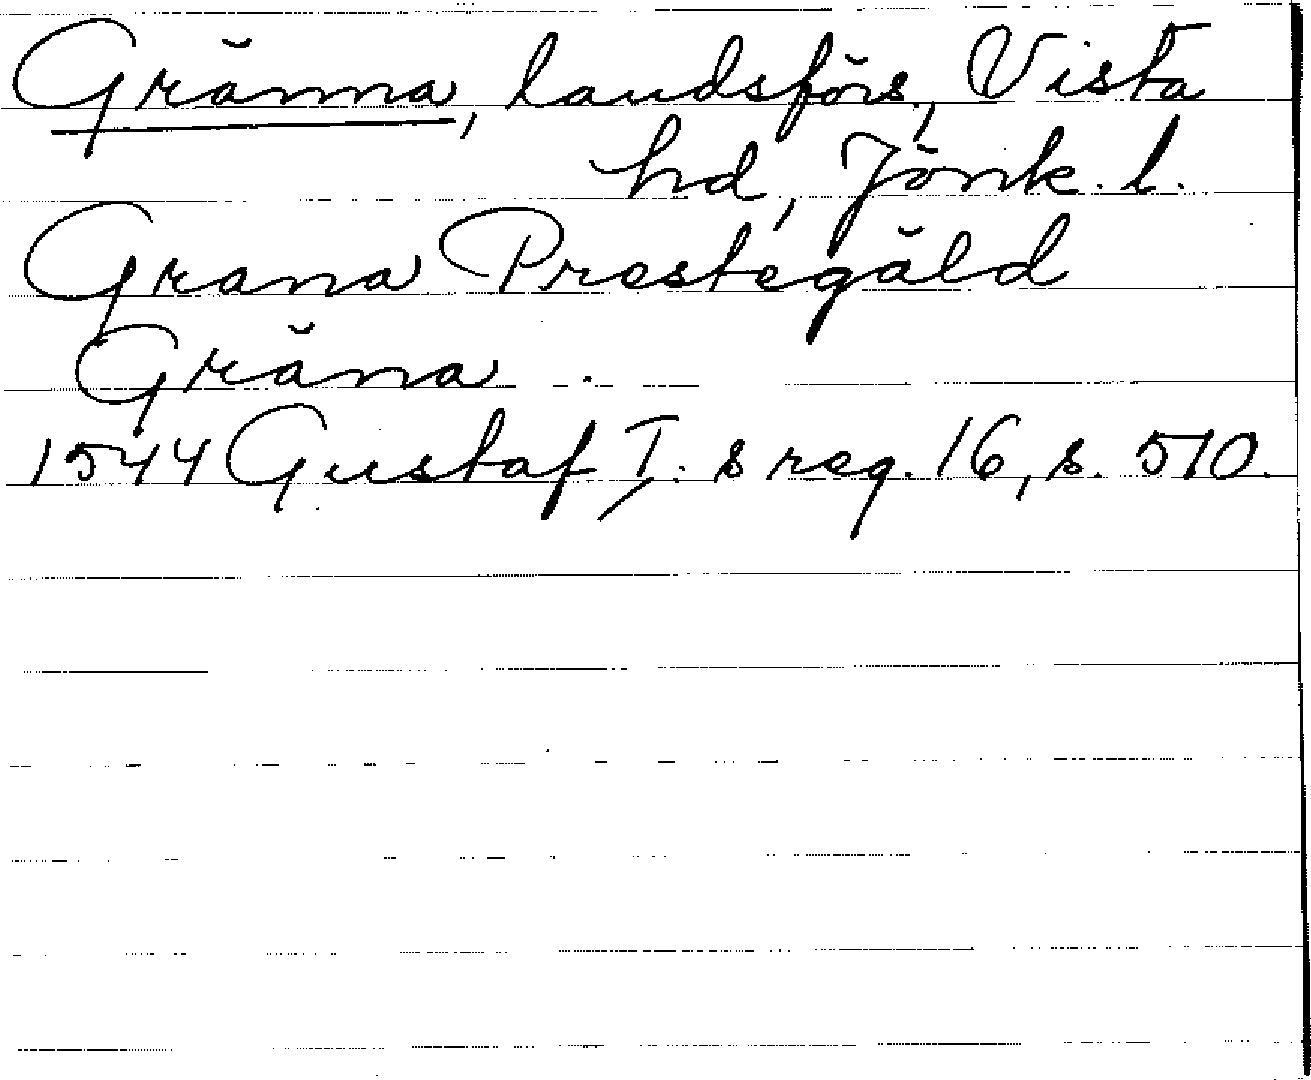 Gränna, landsförs., Vista
hd, Jönk. l.
Grana Prestegäld
Gräna
1544 Gustaf I:s reg. 16, s. 510.